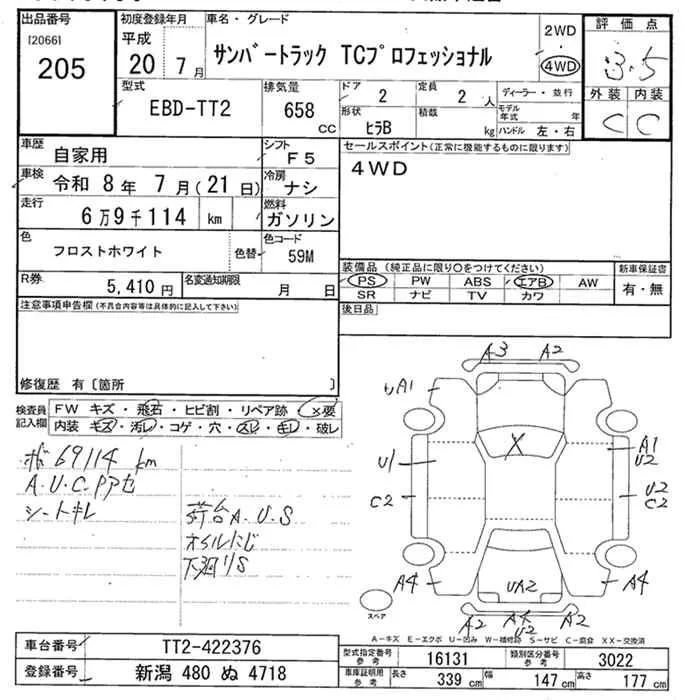 出品番号
[2066]
205
初度登録年月
平成
20 7月
車名・グレード
サンバートラック TCプロフェッショナル
2WD
・
4WD
評価点
3.5
外装 内装
C C
型式
EBD-TT2
排気量
658 cc
ドア
2
定員
2 人
形状
ヒラB
積載
kg
ディーラー・並行
モデル年式 年
ハンドル 左・右
車歴
自家用
シフト
F5
車検
令和 8年 7月(21日)
冷房
ナシ
走行
6万9千114 km
燃料
ガソリン
色
フロストホワイト
色替
色コード
59M
R券
5,410円
名変通知期限
月 日
セールスポイント(正常に機能するものに限ります)
4WD
装備品(純正品に限り○をつけてください)
PS PW ABS エアB AW
SR ナビ TV カワ
新車保証書
有・無
後日品
注意事項申告欄(不具合内容等は具体的に記入して下さい)
修復歴 有〔箇所 〕
検査員記入欄
FW キズ・飛石・ヒビ割・リペア跡 ×要
内装 キズ・汚レ・コゲ・穴・スレ・キレ・破レ
69114 km
A.U.C.Pアセ
シートキレ
荷台A.U.S
オイルにじ
下廻りS
A3 A2
A1
U1
C2
A4
X
A1
U2
U2
C2
A4
UA2
A2 A4 A2
U2
スペア
A−キズ E−エクボ U−凹み W−補修跡 S−サビ C−腐食 XX−交換済
車台番号
TT2-422376
登録番号
新潟 480 ぬ 4718
型式指定番号 参考
16131
類別区分番号 参考
3022
車庫証明用 参考
長さ 339 cm 幅 147 cm 高さ 177 cm